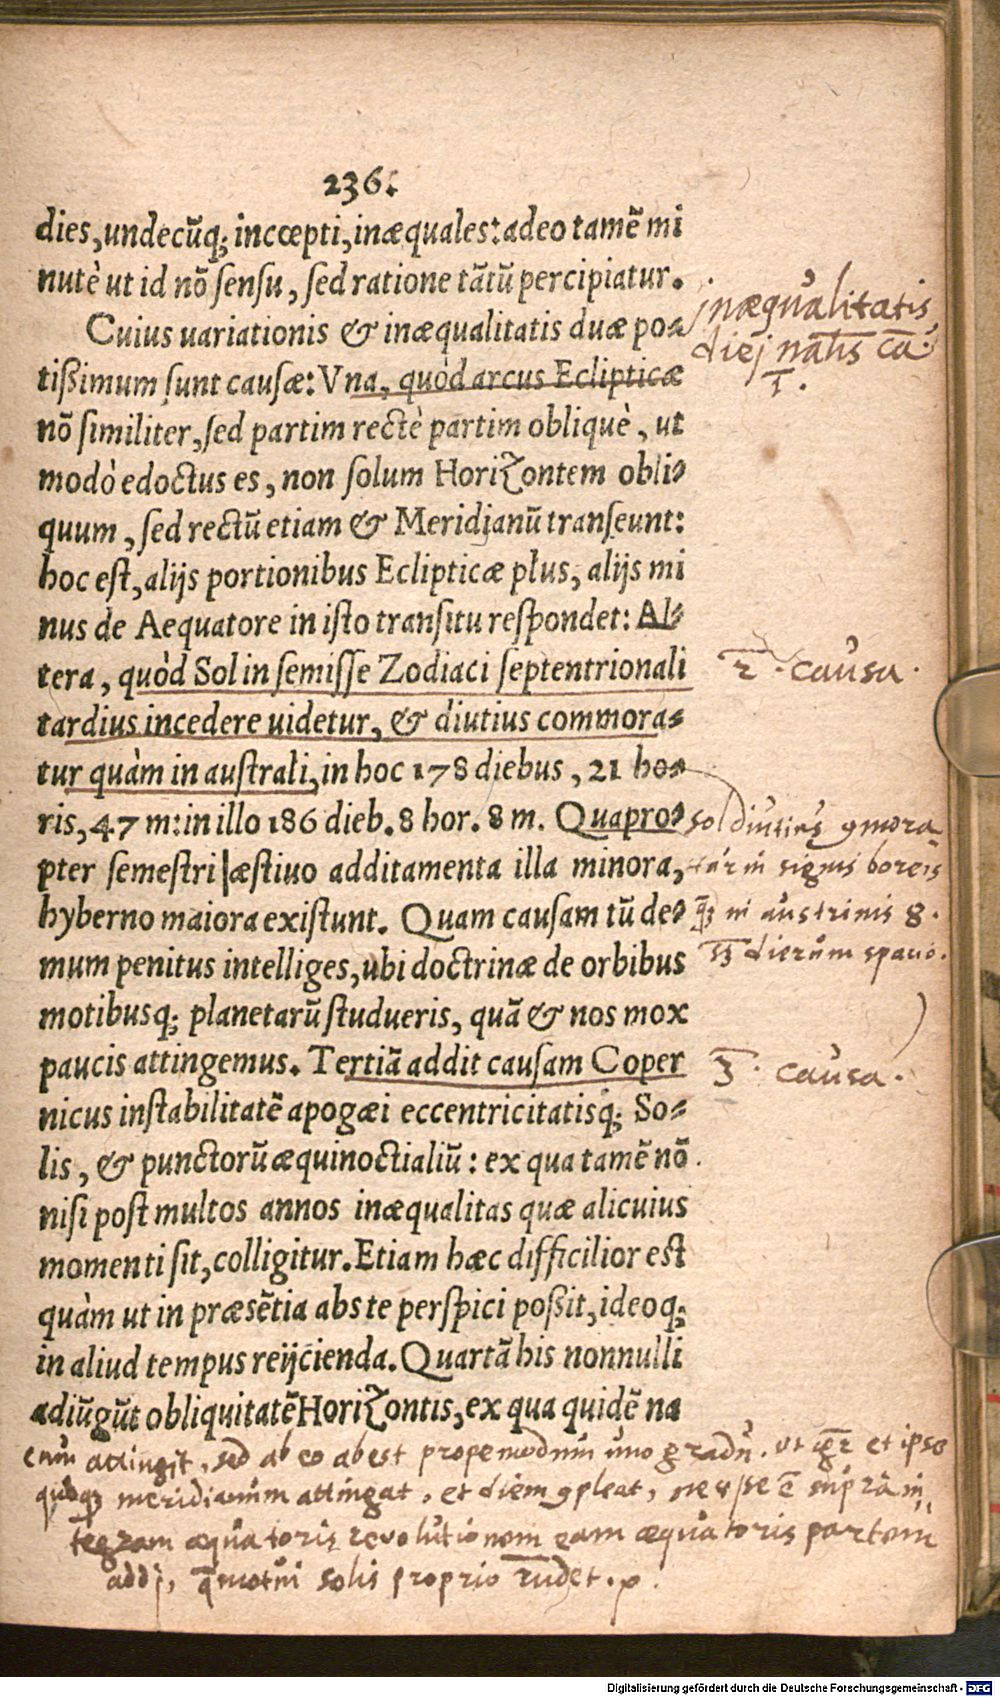 236.
dies, undecũq; incœpti, inæquales: adeo tamẽ mi
nutè ut id nõ sensu, sed ratione tãtũ percipiatur.
Cuius uariationis & inæqualitatis duæ po-
tißimum sunt causæ: Vna, quòd arcus Eclipticæ
nõ similiter, sed partim rectè partim obliquè, ut
modò edoctus es, non solum Horizontem obli-
quum, sed rectũ etiam & Meridianũ transeunt:
hoc est, alijs portionibus Eclipticæ plus, alijs mi
nus de Aequatore in isto transitu respondet: Al-
tera, quòd Sol in semisse Zodiaci septentrionali
tardius incedere uidetur, & diutius commora-
tur quàm in australi, in hoc 178 diebus, 21 ho-
ris, 47 m: in illo 186 dieb. 8 hor. 8 m. Quapro-
pter semestri æstiuo additamenta illa minora,
hyberno maiora existunt. Quam causam tũ de-
mum penitus intelliges, ubi doctrinæ de orbibus
motibusq; planetarũ studueris, quã & nos mox
paucis attingemus. Tertiã addit causam Coper
nicus instabilitatẽ apogæi eccentricitatisq; So-
lis, & punctorũ æquinoctialiũ: ex qua tamẽ nõ
nisi post multos annos inæqualitas quæ alicuius
momenti sit, colligitur. Etiam hæc difficilior est
quàm ut in præsẽtia abs te perspici poßit, ideoq;
in aliud tempus reijcienda. Quartã his nonnulli
adiũgũt obliquitatẽ Horizontis, ex qua quidẽ na
inæqualitatis
diej natis cã
1.
2. causa.
sol diutius 9mora
tur in signis boreis
in austrinis 8.
dierum spacio.
3. causa.
enim attingit, sed ab eo abest propemodum uno gradu. ut et ipse
quoq meridianum attingat, et diem 9pleat, necesse ẽ supra in
tegram æquatoris revolutionem eam æquatoris partem
addj, motui solis proprio
Digitalisierung gefördert durch die Deutsche Forschungsgemeinschaft - DFG